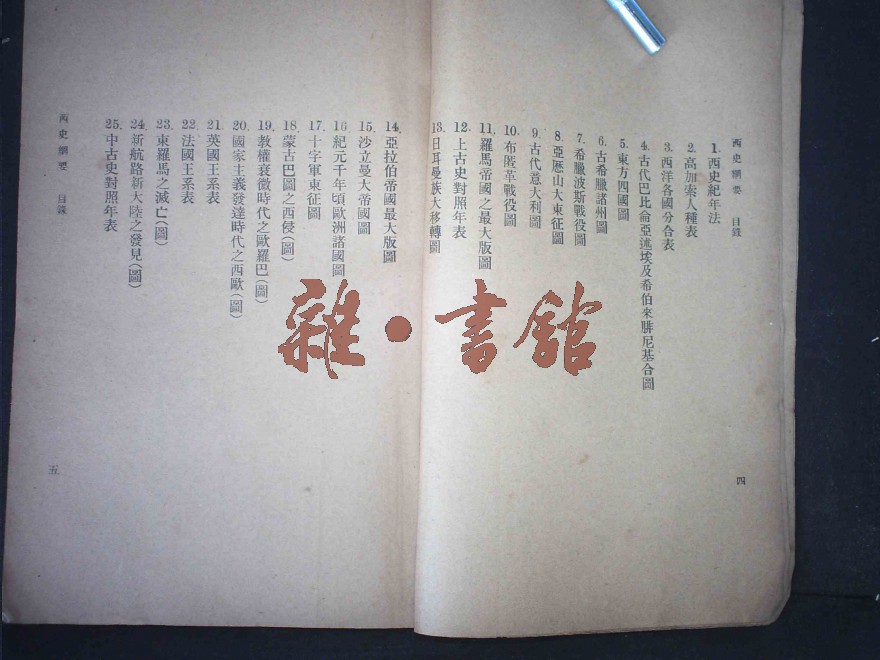 西史綱要 目錄
1. 西史紀年法
2. 高加索人種表
3. 西洋各國分合表
4. 古代巴比倫亞述埃及希伯來腓尼基合圖
5. 東方四國圖
6. 古希臘諸州圖
7. 希臘波斯戰役圖
8. 亞歷山大東征圖
9. 古代意大利圖
10. 布匿革戰役圖
11. 羅馬帝國之最大版圖
12. 上古史對照年表
13. 日耳曼族大移轉圖
四
14. 亞拉伯帝國最大版圖
15. 沙立曼大帝國圖
16. 紀元千年頃歐洲諸國圖
17. 十字軍東征圖
18. 蒙古巴圖之西侵(圖)
19. 教權衰微時代之歐羅巴(圖)
20. 國家主義發達時代之西歐(圖)
21. 英國王系表
22. 法國王系表
23. 東羅馬之滅亡(圖)
24. 新航路新大陸之發見(圖)
25. 中古史對照年表
西史綱要 目錄
五
雜·書館